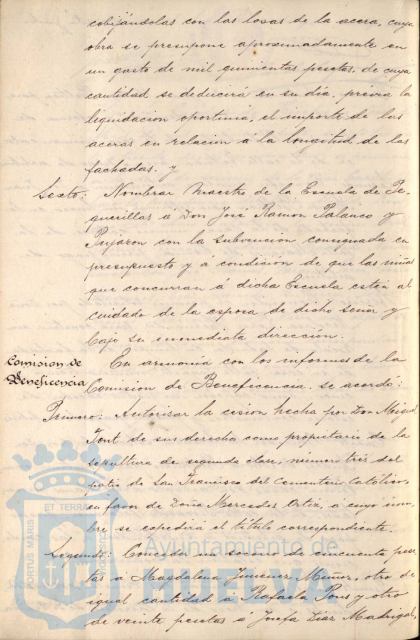 cobijándolas con las losas de la acera, cuya
obra se presupone aproximadamente en
un gasto de mil quinientas pesetas, de cuya
cantidad se deducirá en su día, prévia la
liquidacion oportuna, el importe de las
aceras en relacion á la longitud de las
fachadas. y
Sexto: Nombrar Maestro de la Escuela de Pe-
guerillas á Don José Ramon Palanco y
Pujaron con la subvencion consignada en
presupuesto y á condicion de que las niñas
que concurran á dicha Escuela estén al
cuidado de la esposa de dicho señor y
bajo su inmediata direccion.
Comision de
Beneficencia
En armonía con los informes de la
Comision de Beneficencia, se acordó:
Primero: Autorizar la cesion hecha por Don Miguel
Font de sus derechos como propietario de la
sepultura de segunda clase, número tres del
patio de San Francisco del Cementerio Católico,
en favor de Doña Mercedes Ortiz, á cuyo nom-
bre se expedirá el título correspondiente.
Segundo: Conceder un socorro de cincuenta pese-
tas á Magdalena Jimenez Muñoz, otro de
igual cantidad á Rafaela Pons y otro
de veinte pesetas á Josefa Diaz Madrigal,
PORTUS MARIS ET TERRAE
Ayuntamiento de
HUELVA